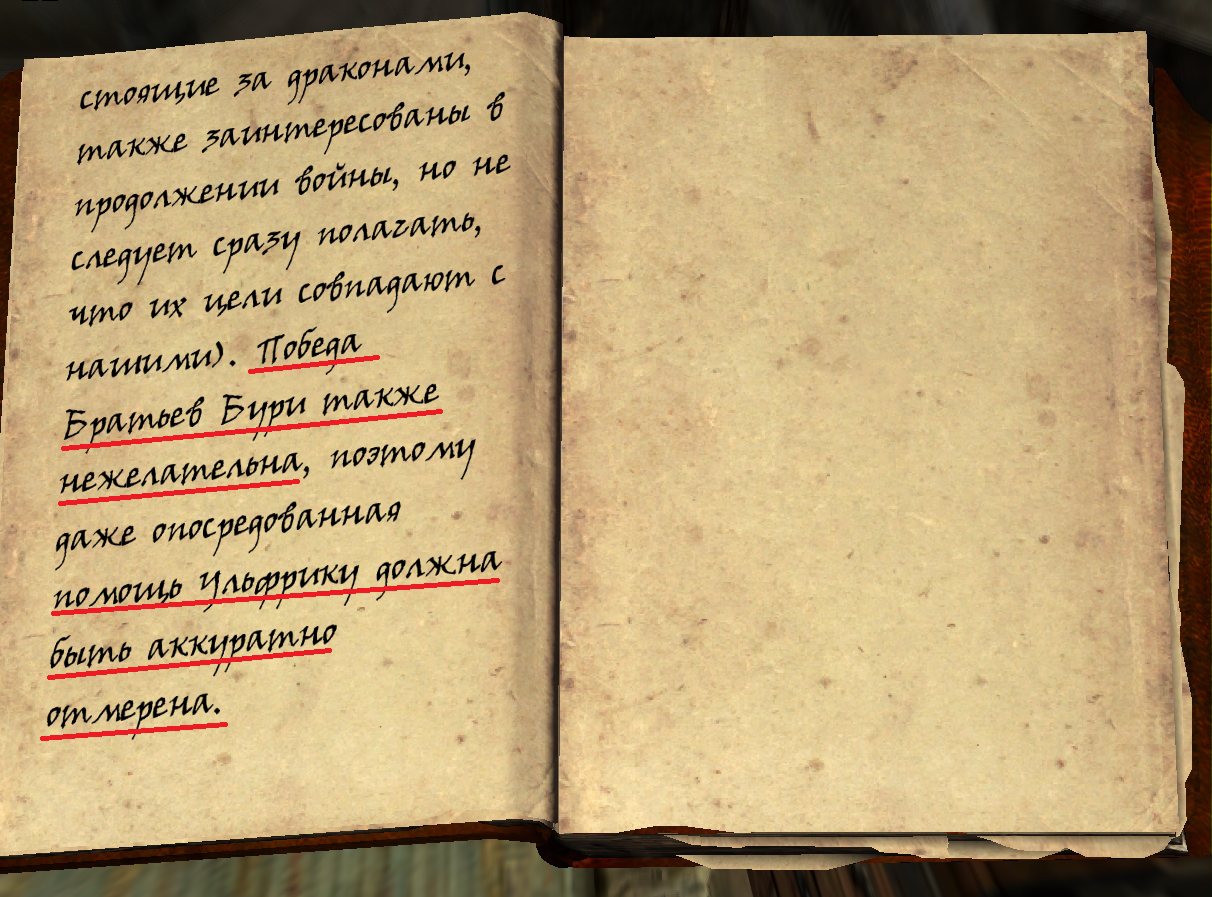 стоящие за драконами,
также заинтересованы в
продолжении войны, но не
следует сразу полагать,
что их цели совпадают с
нашими). Победа
Братьев Бури также
нежелательна, поэтому
даже опосредованная
помощь Ульфрику должна
быть аккуратно
отмерена.